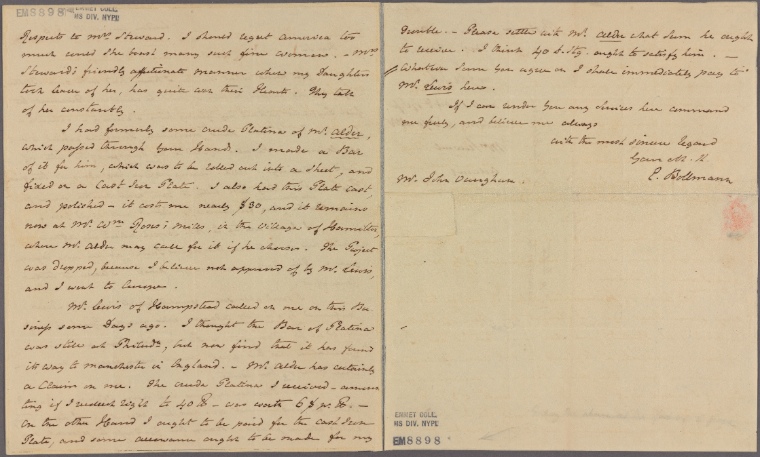 EM8898
EMMET COLL.
MS DIV. NYPL
Respects to Mrs. Steward. I should regret America too
much could she boast many such fine women. – Mrs
Steward's friendly affectionate manner where my Daughters
took leave of her, has quite won their Hearts. They talk
of her constantly.
I had formerly some crude Platina of Mr. Alder,
which passed through your Hands. I made a Bar
of it for him, which was to be rolled out into a Sheet, and
fixed on a Cast Iron Plate. I also had this Plate cast,
and polished – it cost me nearly $30, and it remains
now at Mr. Wm Rose's Mills, in the Village of Hamilton
where Mr. Alder may call for it if he chooses. The Project
was dropped, because I believe not approved of by Mr. Lewis,
and I went to Europe.
Mr. Lewis of Hampstead called on me on this Bu
siness some Days ago. I thought the Bar of Platina
was still at Philada, but now find that it has found
its way to Manchester in England. – Mr. Alder has certainly
a Claim on me. The crude Platina I received – amoun
ting if I recollect right to 40 lb – was worth 6 $ pr lb. –
On the other Hand I ought to be paid for the cast Iron
Plate, and some allowance ought to be made for my
trouble. – Please settle with Mr. Alder what Sum he ought
to receive. I think 40 £ Stg. ought to satisfy him. –
Whatever Sum you agree on I shall immediately pay to
Mr. Lewis here.
If I can render you any services here command
me freely, and believe me always
with the most sincere regard
Your
E. Bollmann
Mr. John Vaughan.
EMMET COLL.
MS DIV. NYPL
EM8898